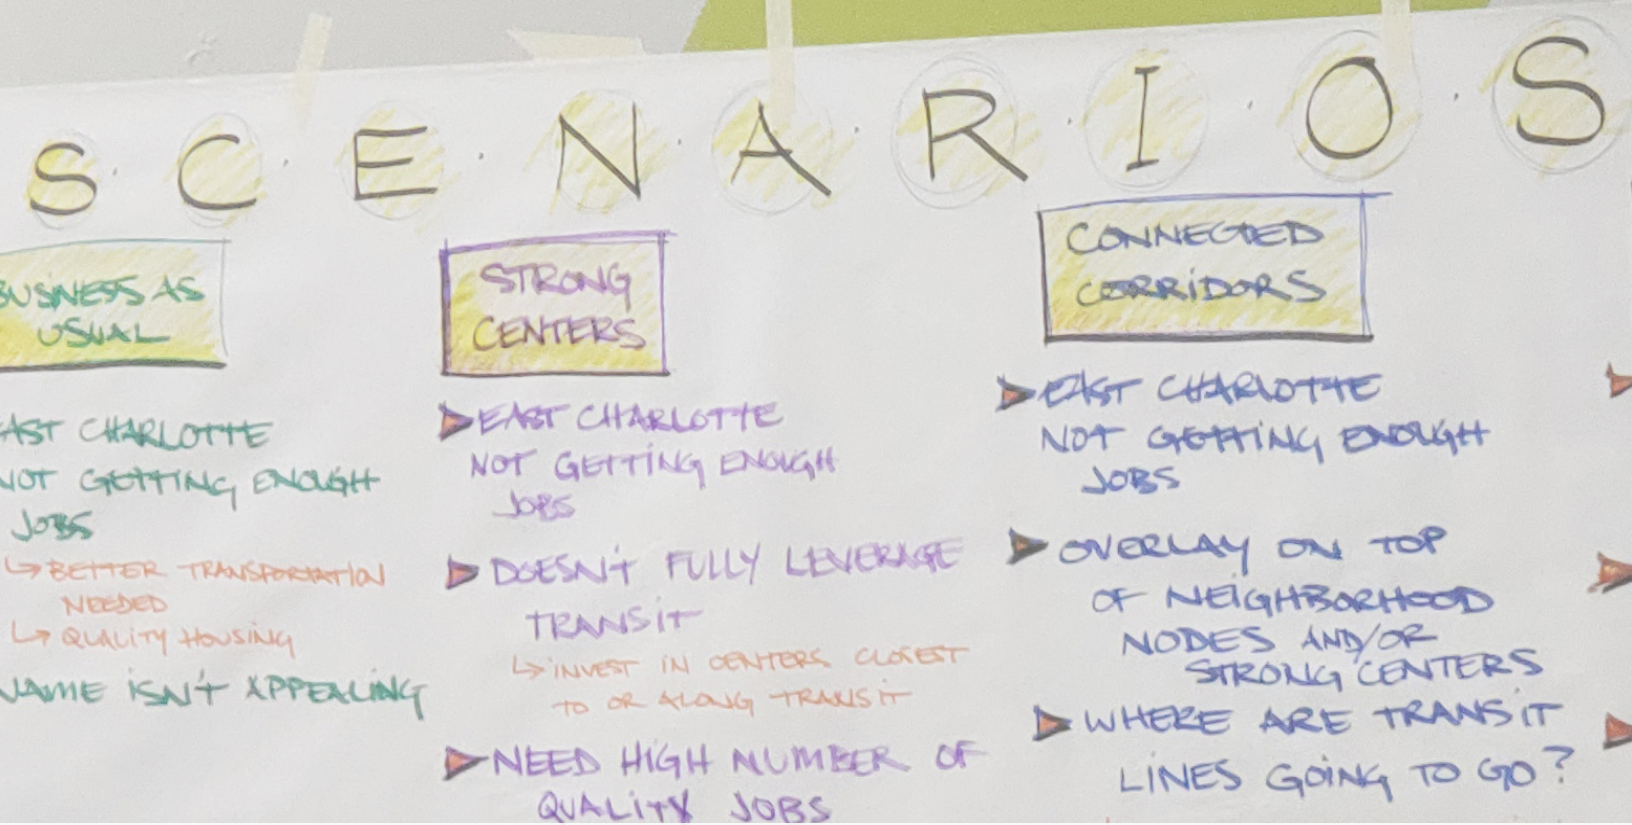 S · C · E · N · A · R · I · O · S
BUSINESS AS
USUAL
EAST CHARLOTTE
NOT GETTING ENOUGH
JOBS
↳ BETTER TRANSPORTATION
NEEDED
↳ QUALITY HOUSING
NAME ISN'T APPEALING
STRONG
CENTERS
EAST CHARLOTTE
NOT GETTING ENOUGH
JOBS
DOESN'T FULLY LEVERAGE
TRANSIT
↳ INVEST IN CENTERS CLOSEST
TO OR ALONG TRANSIT
NEED HIGH NUMBER OF
QUALITY JOBS
CONNECTED
CORRIDORS
EAST CHARLOTTE
NOT GETTING ENOUGH
JOBS
OVERLAY ON TOP
OF NEIGHBORHOOD
NODES AND/OR
STRONG CENTERS
WHERE ARE TRANSIT
LINES GOING TO GO?